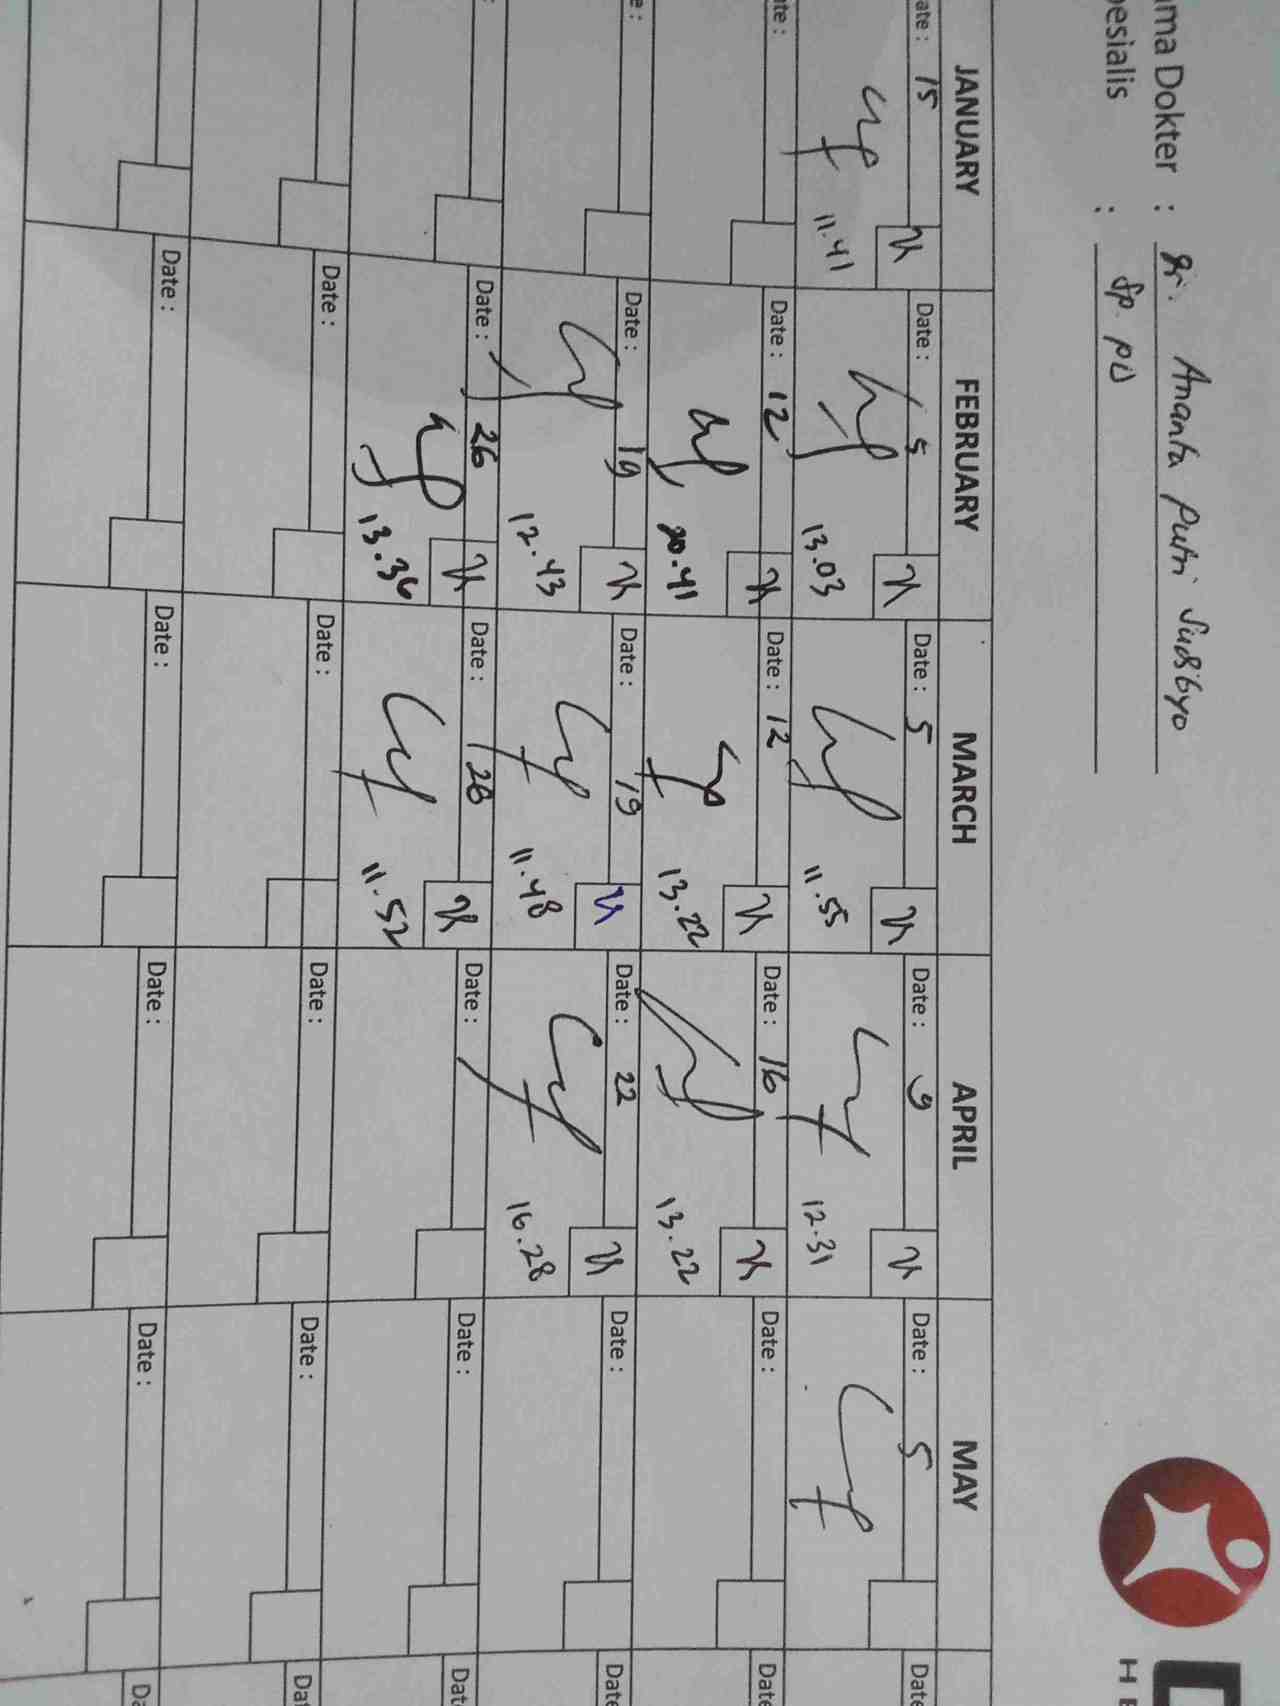 ma Dokter : dr. Ananta Putri Sudibyo
esialis : Sp. PD
JANUARY FEBRUARY MARCH APRIL MAY
ate : 15 Date : 5 Date : 5 Date : 9 Date : 5
11.41 13.03 11.55 12.31
te : Date : 12 Date : 12 Date : 16 Date : Date
20.41 13.22 13.22
e : Date : 19 Date : 19 Date : 22 Date : Date
12.43 11.48 16.28
: Date : 26 Date : 26 Date : Date : Date
13.36 11.52
Date : Date : Date : Date : Dat
Date : Date : Date : Date : Da